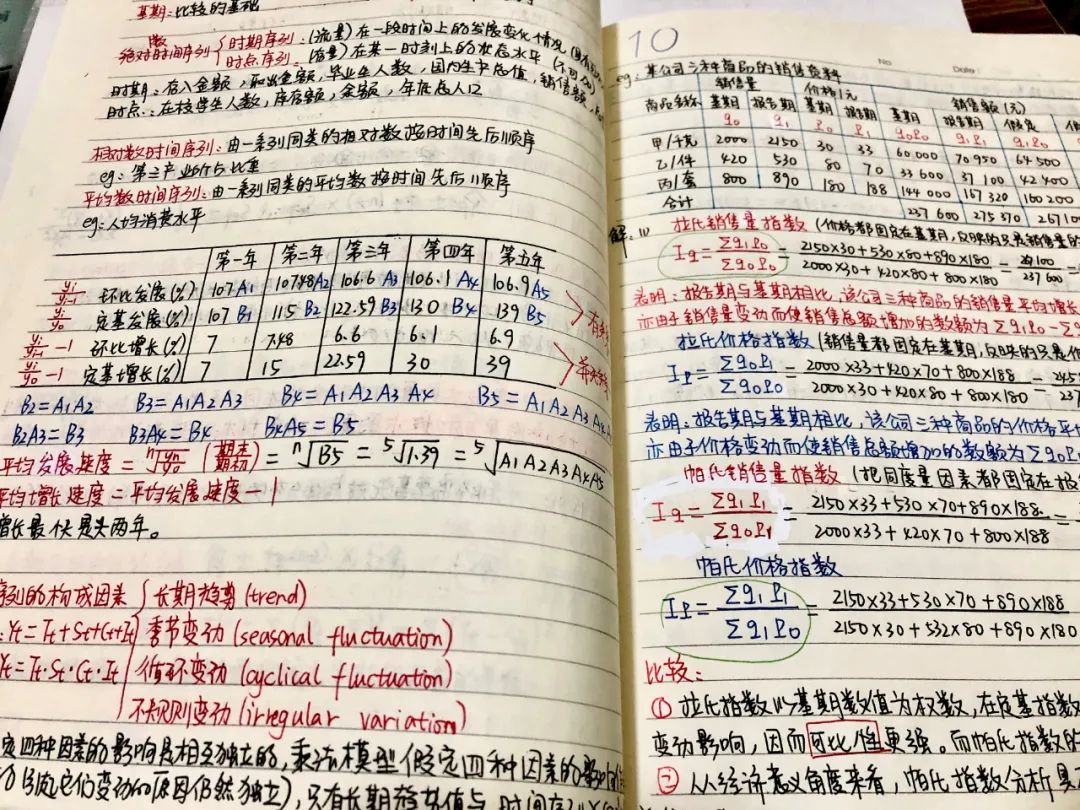 基期：比较的基础
绝对数时间序列 { 时期序列：(流量) 在一段时间上的发展变化情况
时点序列：(存量) 在某一时刻上的状态水平 (不可加)
时期：存入金额，取出金额，毕业生人数，国内生产总值，销售额
时点：在校学生人数，库存额，余额，年底总人口
相对数时间序列：由一系列同类的相对数按时间先后顺序
eg：第三产业所占比重
平均数时间序列：由一系列同类的平均数按时间先后顺序
eg：人均消费水平
第一年 第二年 第三年 第四年 第五年
yi/yi-1 环比发展(%) 107 A1 107.48 A2 106.6 A3 106.1 A4 106.9 A5
yi/y0 定基发展(%) 107 B1 115 B2 122.59 B3 130 B4 139 B5
yi/yi-1 -1 环比增长(%) 7 7.48 6.6 6.1 6.9
yi/y0 -1 定基增长(%) 7 15 22.59 30 39
B2=A1A2 B3=A1A2A3 B4=A1A2A3A4 B5=A1A2A3A4A5
B2A3=B3 B3A4=B4 B4A5=B5
平均发展速度 = ⁿ√(yn/y0) (期末/期初) = ⁿ√B5 = ⁵√1.39 = ⁵√A1A2A3A4A5
平均增长速度 = 平均发展速度 - 1
增长最快是头两年。
序列的构成因素 { 长期趋势 (trend)
Yt=Tt+St+Ct+It 季节变动 (seasonal fluctuation)
Yt=Tt·St·Ct·It 循环变动 (cyclical fluctuation)
不规则变动 (irregular variation)
定四种因素的影响是相互独立的，乘法模型假定四种因素的影响
它们变动的原因仍然独立)，只有长期趋势值与时间序列
10
No Date
eg：某公司三种商品的销售资料
商品名称 销售量 价格/元 销售额(元)
基期 报告期 基期 报告期 基期 报告期 假定
q0 q1 P0 P1 q0P0 q1P1 q1P0
甲/千克 2000 2150 30 33 60 000 70 950 64 500
乙/件 420 530 80 70 33 600 37 100 42 400
丙/套 800 890 180 188 144 000 167 320 160 200
合计 237 600 275 370 26710
解：(1) 拉氏销售量指数 (价格都固定在基期，反映的只是销售量的
Iq = Σq1P0/Σq0P0 = (2150×30+530×80+890×180)/(2000×30+420×80+800×180) = /237 600 =
表明：报告期与基期相比，该公司三种商品的销售量平均增长
亦由于销售量变动而使销售总额增加的数额为 Σq1P0-Σq
拉氏价格指数 (销售量都固定在基期，反映的只是价
IP = Σq0P1/Σq0P0 = (2000×33+420×70+800×188)/(2000×30+420×80+800×180) = 245/237
表明：报告期与基期相比，该公司三种商品的价格平
亦由于价格变动而使销售总额增加的数额为 Σq0P
帕氏销售量指数 (把同度量因素都固定在报
Iq = Σq1P1/Σq0P1 = (2150×33+530×70+890×188)/(2000×33+420×70+800×188) =
帕氏价格指数
IP = Σq1P1/Σq1P0 = (2150×33+530×70+890×188)/(2150×30+532×80+890×180)
比较：
① 拉氏指数以基期数值为权数，在定基指数
变动影响，因而可比性更强。而帕氏指数的
② 从经济意义角度来看，帕氏指数分析具